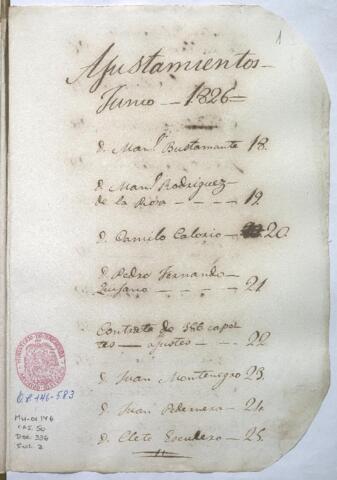 1
Ajustamientos
Junio — 1826=
d. Man.l Bustamante 18.
d. Man.l Rodriguez
de la Rosa - - - - 19.
d. Camilo Calorio - 20
d. Pedro Fernando
Quijano - - - - 21
Contrato de 586 capo
tes — ajustes — - 22
d. Juan Montenegro 23.
d. Juan Pedernera - 24.
d. Cleto Escudero - 25.
O.L. 146-583
MH-OL 146
CAJ. 50
DOC. 336
FOL. 2